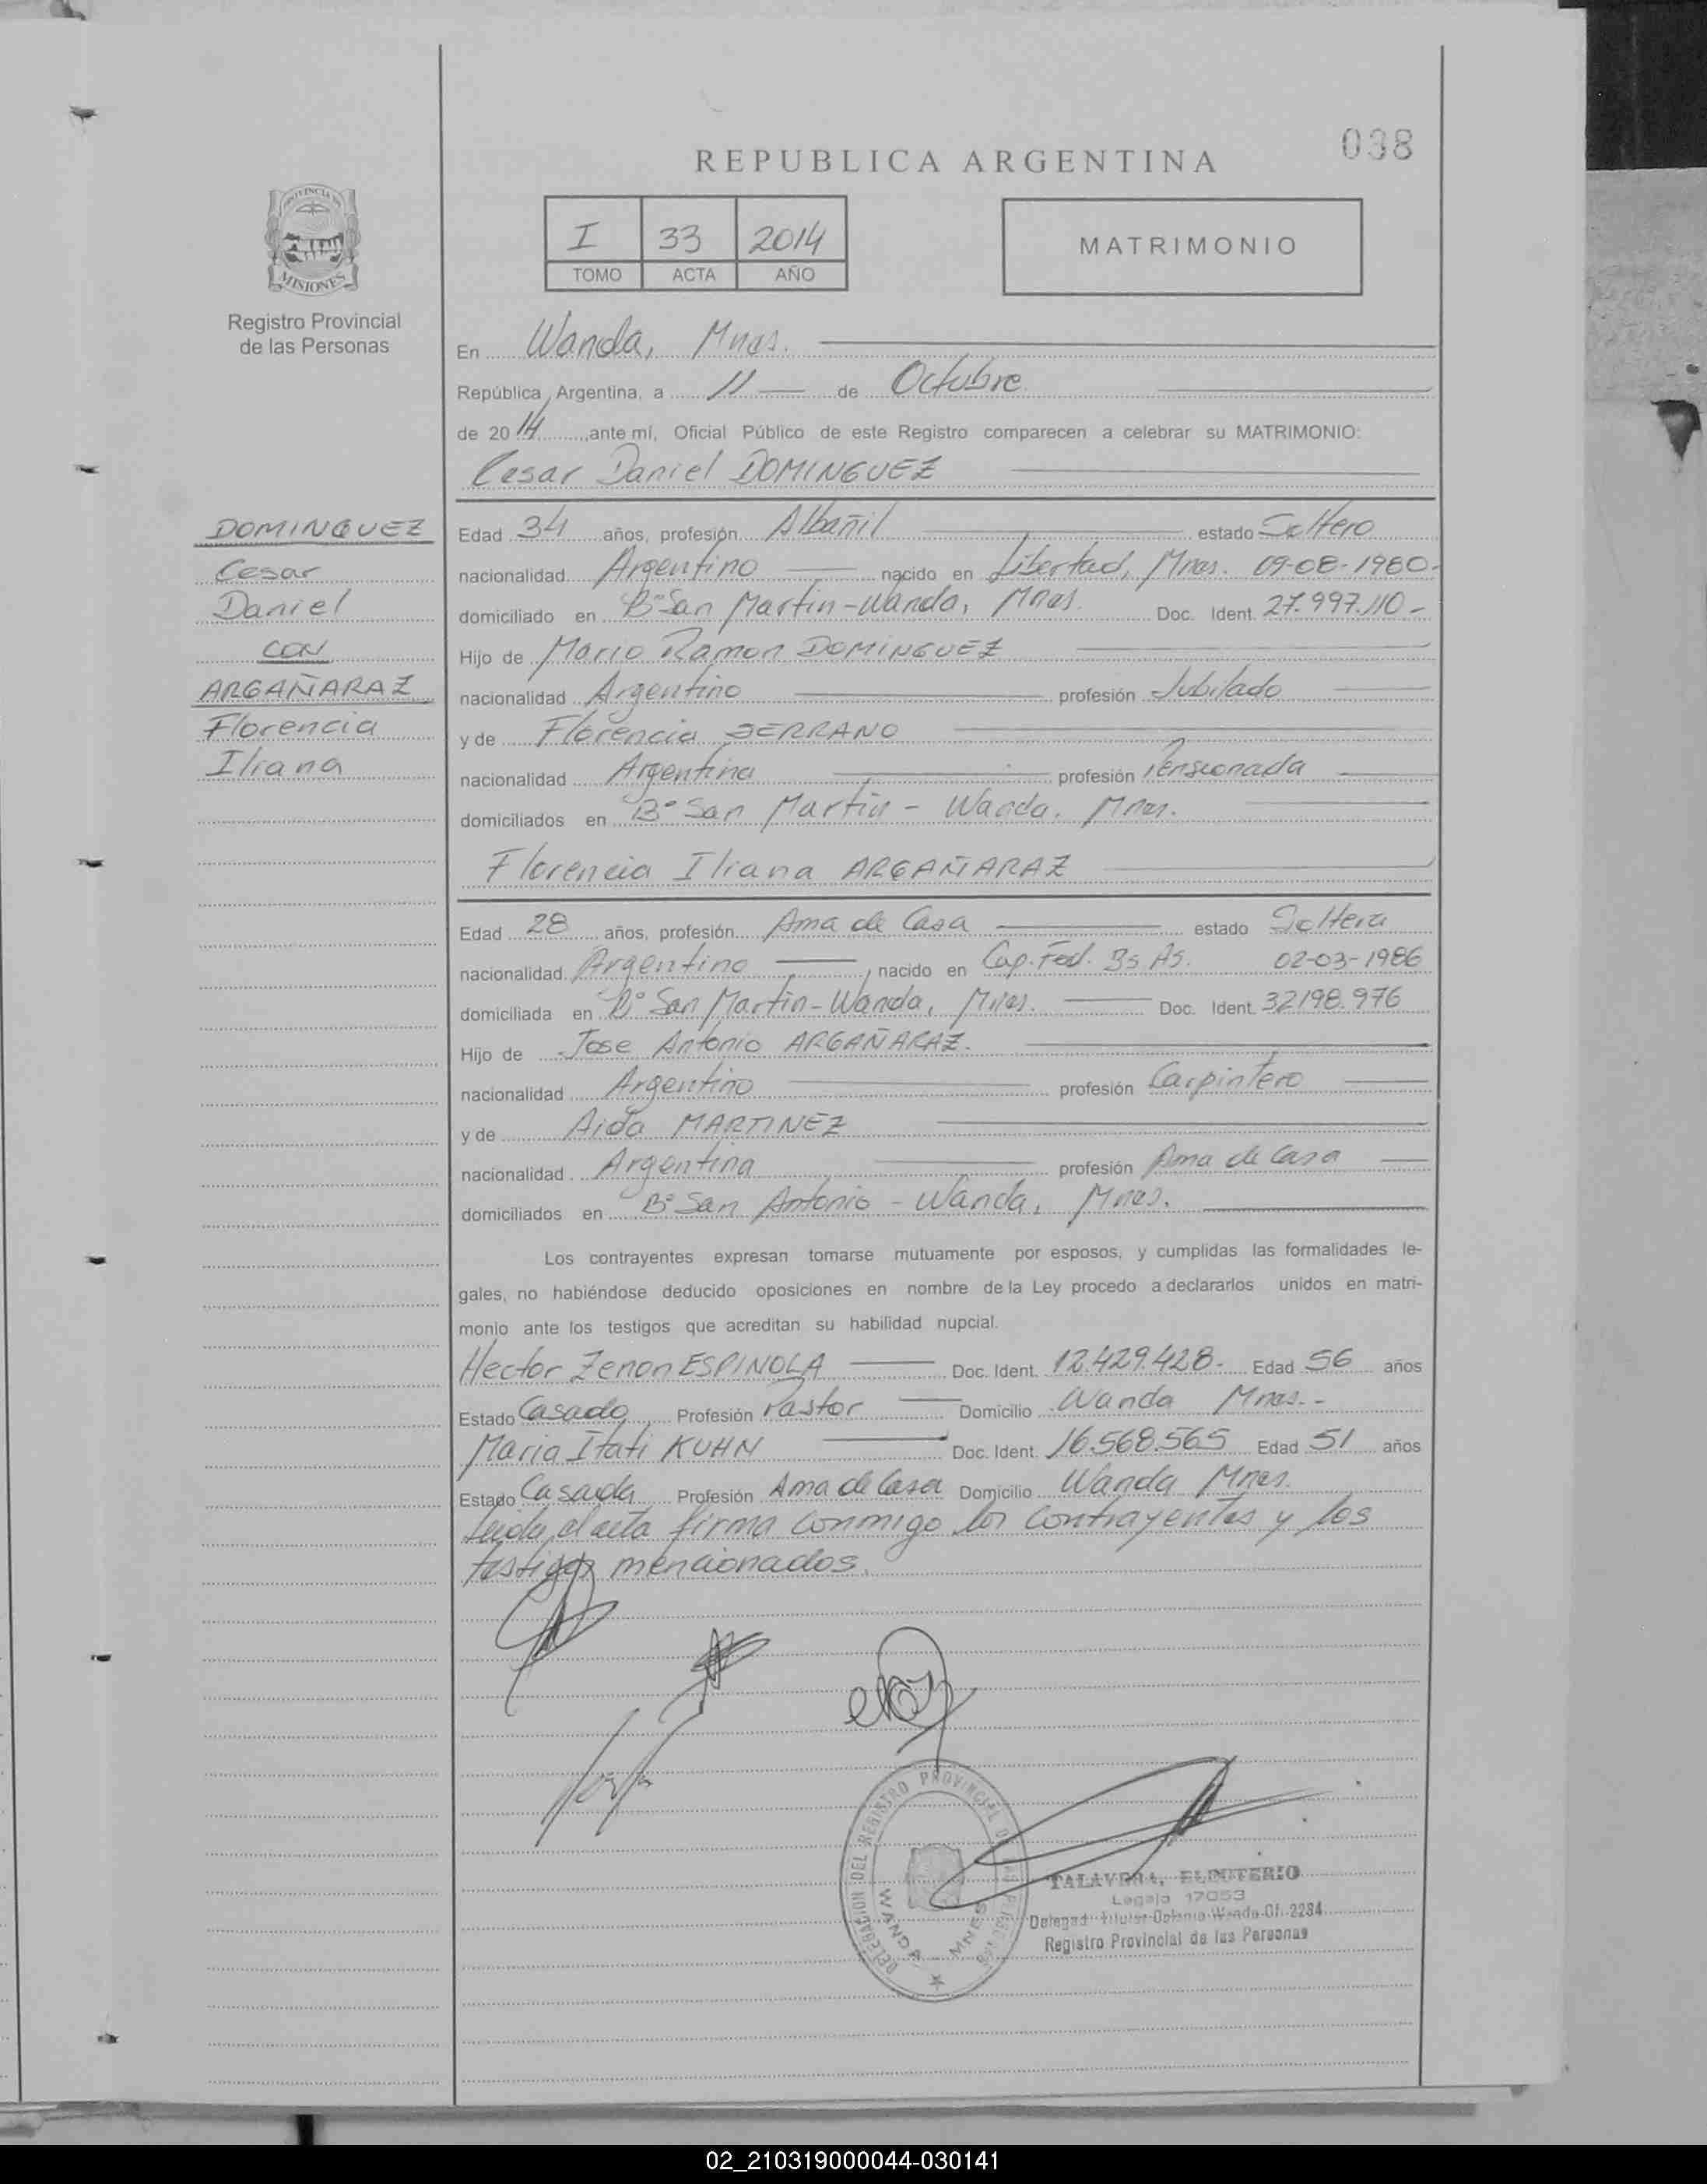 038
REPUBLICA ARGENTINA
I 33 2014
TOMO ACTA AÑO
MATRIMONIO
PROVINCIA DE
MISIONES
Registro Provincial
de las Personas
DOMINGUEZ
Cesar
Daniel
CON
ARGAÑARAZ
Florencia
Iliana
En Wanda, Mnes.
República Argentina, a 11 de Octubre
de 2014, ante mí, Oficial Público de este Registro comparecen a celebrar su MATRIMONIO:
Cesar Daniel DOMINGUEZ
Edad 34 años, profesión Albañil estado Soltero
nacionalidad Argentino nacido en Libertad, Mnes. 09-08-1980-
domiciliado en B° San Martin-Wanda, Mnes. Doc. Ident. 27.997.110-
Hijo de Mario Ramon DOMINGUEZ
nacionalidad Argentino profesión Jubilado
y de Florencia SERRANO
nacionalidad Argentina profesión Pensionada
domiciliados en B° San Martin - Wanda, Mnes.
Florencia Iliana ARGAÑARAZ
Edad 28 años, profesión Ama de Casa estado Soltera
nacionalidad Argentino nacido en Cap. Fed. Bs As. 02-03-1986
domiciliada en B° San Martin-Wanda, Mnes. Doc. Ident. 32.198.976
Hijo de Jose Antonio ARGAÑARAZ.
nacionalidad Argentino profesión Carpintero
y de Aida MARTINEZ
nacionalidad Argentina profesión Ama de Casa
domiciliados en B° San Antonio - Wanda, Mnes.
Los contrayentes expresan tomarse mutuamente por esposos, y cumplidas las formalidades le-
gales, no habiéndose deducido oposiciones en nombre de la Ley procedo a declararlos unidos en matri-
monio ante los testigos que acreditan su habilidad nupcial.
Hector Zenon ESPINOLA Doc. Ident. 12.429.428- Edad 56 años
Estado Casado Profesión Pastor Domicilio Wanda Mnes.-
Maria Itati KUHN Doc. Ident. 16.568.565 Edad 51 años
Estado Casada Profesión Ama de Casa Domicilio Wanda Mnes.
Leida el acta firma conmigo los contrayentes y los
testigos mencionados.
DELEGACION DEL REGISTRO PROVINCIAL DE LAS PERSONAS
WANDA - MNES
TALAVERA, ELEUTERIO
Legajo 17053
Delegad Titular Colonia Wanda Of. 2284
Registro Provincial de las Personas
02_210319000044-030141